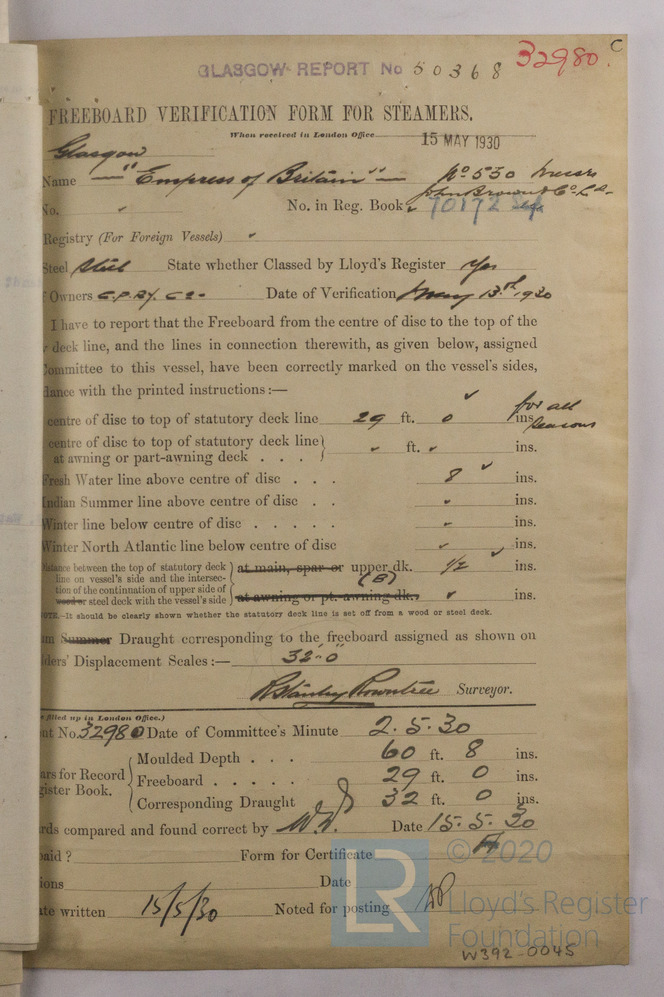 32980. C
GLASGOW REPORT No 50368
FREEBOARD VERIFICATION FORM FOR STEAMERS.
When received in London Office 15 MAY 1930
Glasgow
Name "Empress of Britain" No 530 Messrs
John Brown & Co. Ld.
No. No. in Reg. Book 70172
Registry (For Foreign Vessels)
Steel Steel State whether Classed by Lloyd's Register Yes
Owners C.P.Ry. Co. Date of Verification May 13th 1930
I have to report that the Freeboard from the centre of disc to the top of the
deck line, and the lines in connection therewith, as given below, assigned
Committee to this vessel, have been correctly marked on the vessel's sides,
dance with the printed instructions:—
centre of disc to top of statutory deck line 29 ft. 0 ins. for all seasons
centre of disc to top of statutory deck line
at awning or part-awning deck . . . ft. ins.
Fresh Water line above centre of disc . . . 8 ins.
Indian Summer line above centre of disc . . ins.
Winter line below centre of disc . . . . . ins.
Winter North Atlantic line below centre of disc ins.
Distance between the top of statutory deck
line on vessel's side and the intersec-
tion of the continuation of upper side of
wood or steel deck with the vessel's side
at main, spar or upper dk. 1/2 ins.
(B)
at awning or pt. awning dk. ins.
NOTE.—It should be clearly shown whether the statutory deck line is set off from a wood or steel deck.
um Summer Draught corresponding to the freeboard assigned as shown on
lders' Displacement Scales:— 32'-0"
R Stanley Rowntree Surveyor.
filled up in London Office.)
nt No. 32980 Date of Committee's Minute 2.5.30
ars for Record
gister Book.
Moulded Depth . . . 60 ft. 8 ins.
Freeboard . . . . . 29 ft. 0 ins.
Corresponding Draught 32 ft. 0 ins.
rds compared and found correct by Date 15.5.30
paid ? Form for Certificate
ions Date
te written 15/5/30 Noted for posting
© 2020
LR
Lloyd's Register
Foundation
W392-0045